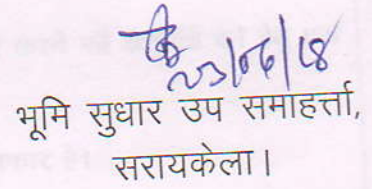 23/06/18
भूमि सुधार उप समाहर्त्ता,
सरायकेला।